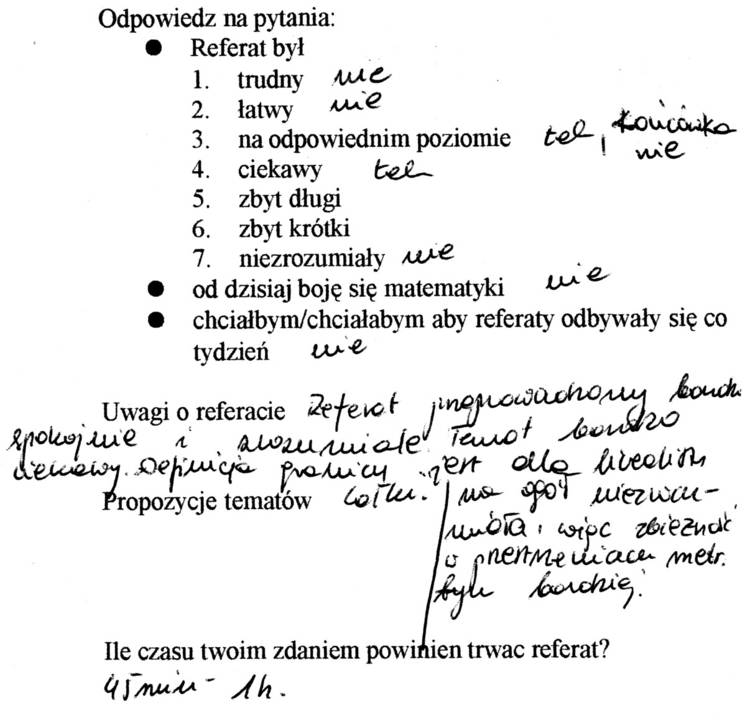 Odpowiedz na pytania:
● Referat był
1. trudny nie
2. łatwy nie
3. na odpowiednim poziomie tak, końcówka nie
4. ciekawy tak
5. zbyt długi
6. zbyt krótki
7. niezrozumiały nie
● od dzisiaj boję się matematyki nie
● chciałbym/chciałabym aby referaty odbywały się co
tydzień nie
Uwagi o referacie Referat przeprowadzony bardzo
spokojnie i zrozumiale. Temat bardzo
ciekawy. Definicja granicy jest dla licealisty
na ogół niezrozu-
miała, więc zbieżność
w przestrzeniach metr.
była bardziej.
Propozycje tematów
Ile czasu twoim zdaniem powinien trwac referat?
45 min - 1h.